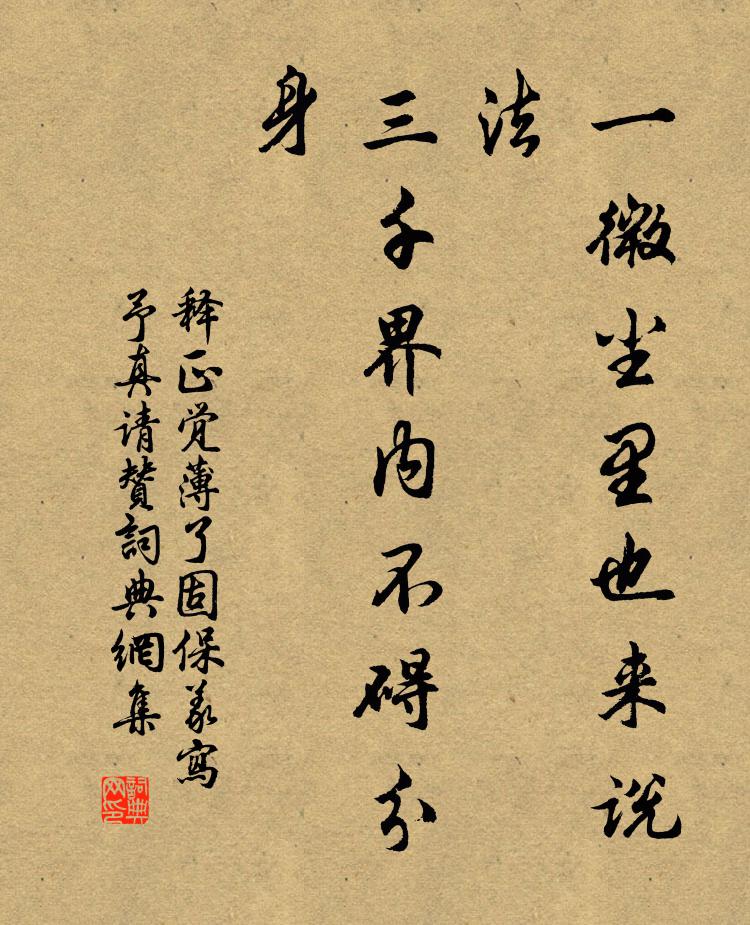 一微尘里也来说
法
三千界内不碍分
身
释正觉薄了固保义寫
予真请赞詞典網集
詞典网印